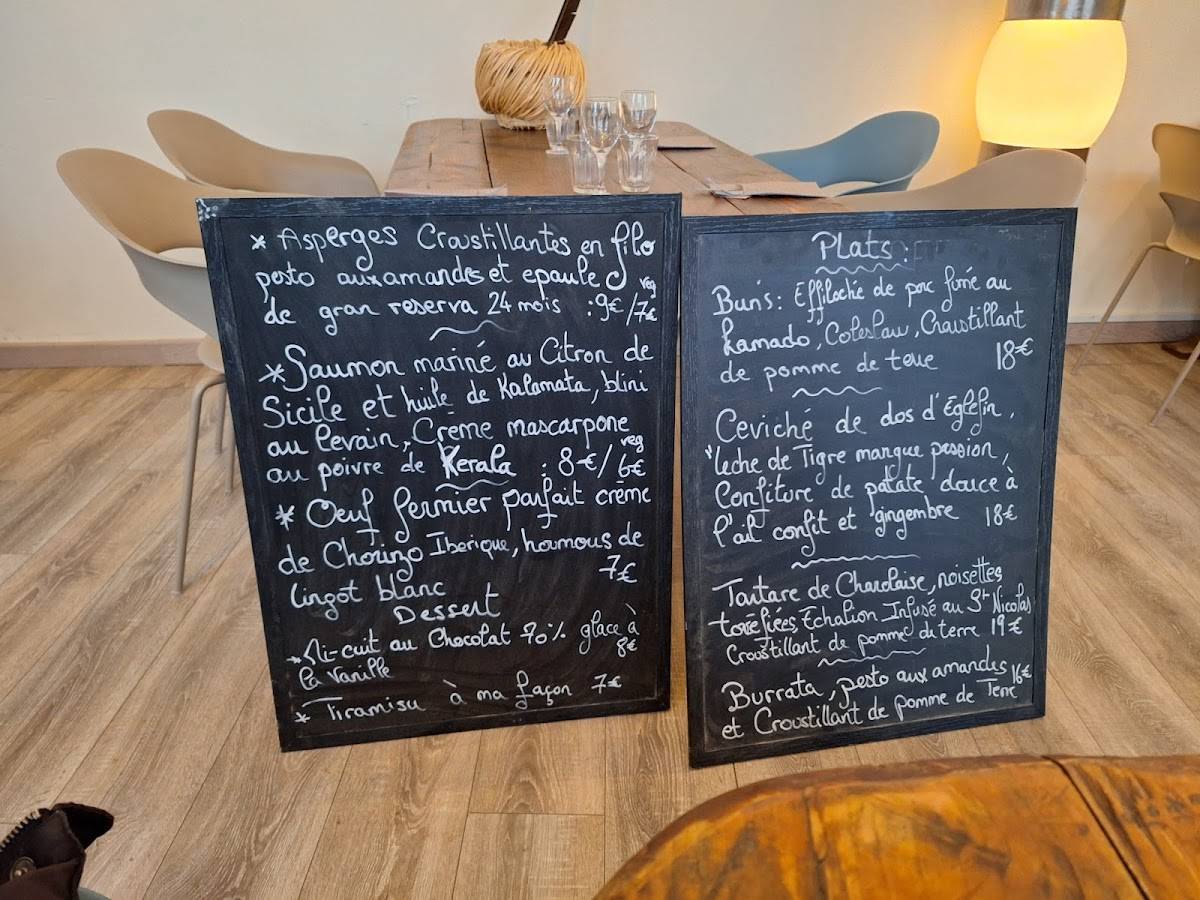 * Asperges Croustillantes en filo
pesto aux amandes et epaule
de gran reserva 24 mois : 9€/7€ veg
*Saumon mariné au Citron de
Sicile et huile de Kalamata, blini
au levain, Crème mascarpone
au poivre de Kerala : 8€/6€ veg
* Oeuf fermier parfait crème
de Chorizo Iberique, houmous de
lingot blanc 7€
Dessert
* Mi-cuit au Chocolat 70% glace à
la vanille 8€
* Tiramisu à ma façon 7€
Plats :
Bun's : Effiloché de porc fumé au
Kamado, Coleslaw, Craustillant
de pomme de terre 18€
Ceviché de dos d'Églefin,
leche de Tigre mangue passion,
Confiture de patate douce à
l'ail confit et gingembre 18€
Tartare de Charolaise, noisettes
torréfiées, Échalion Infusé au St Nicolas
Croustillant de pomme de terre 19€
Burrata, pesto aux amandes 16€
et Croustillant de pomme de Terre